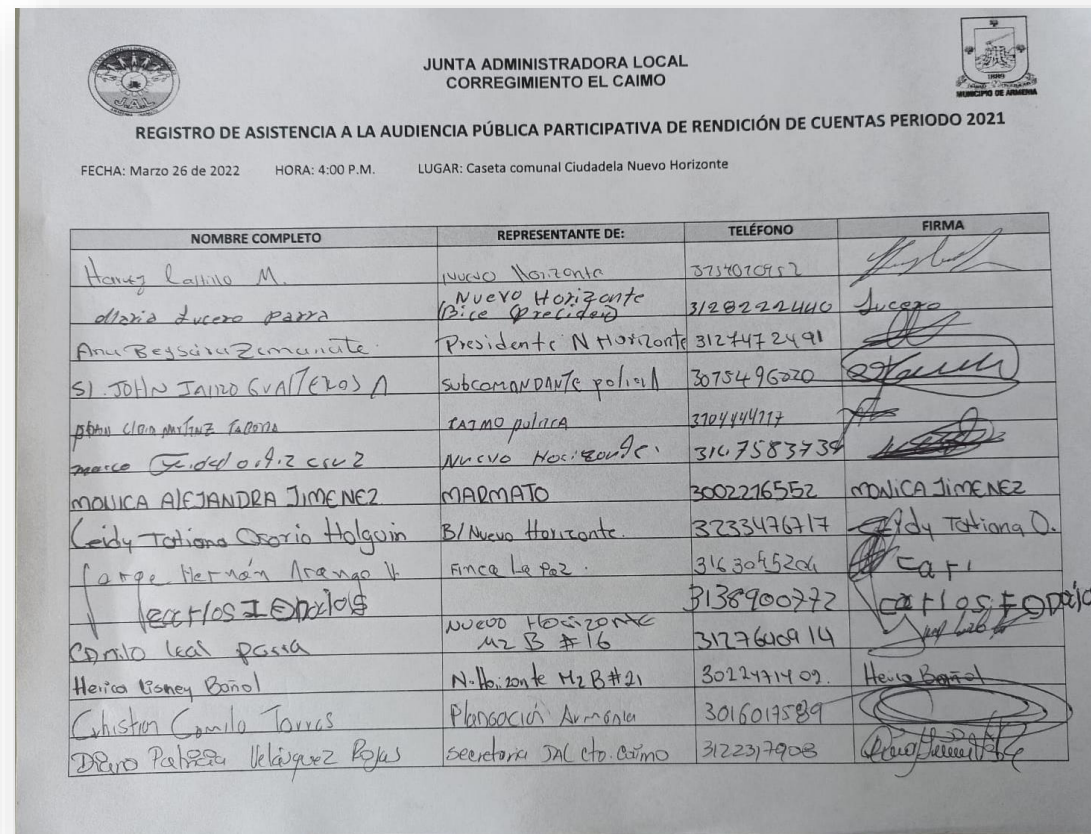 JUNTA ADMINISTRADORA LOCAL
CORREGIMIENTO EL CAIMO
J.A.L.
1889
MUNICIPIO DE ARMENIA
REGISTRO DE ASISTENCIA A LA AUDIENCIA PÚBLICA PARTICIPATIVA DE RENDICIÓN DE CUENTAS PERIODO 2021
FECHA: Marzo 26 de 2022 HORA: 4:00 P.M. LUGAR: Caseta comunal Ciudadela Nuevo Horizonte
NOMBRE COMPLETO REPRESENTANTE DE: TELÉFONO FIRMA
Castillo M. Nuevo Horizonte
Maria Lucero Parra Nuevo Horizonte 3128222440 Lucero
(Bice Precidend)
Ana Presidente N Horizonte 3127472491
SI. JOHN JAIRO GUALTEROS A subcomandante policia 3075496020
CAIMO policia
marco Nuevo Horizonte. 3167583739
MONICA ALEJANDRA JIMENEZ MARMATO 3002276552 MONICA JIMENEZ
Leidy Tatiana Osorio Holguin B/ Nuevo Horizonte. 3233476717 Leidy Tatiana O.
Jorge Hernán Arango V. Finca La Paz. 3163045204
carlos 3138900772 carlos
Camilo leal parra Nuevo Horizonte
Mz B #16
Herica Lisney Bañol N. Horizonte Mz B #21 3022471402. Herica Bañol
Christian Camilo Torres Planeación Armenia 3016017589
Diana Patricia Velásquez Rojas Secretaria JAL cto. Caimo 3122317908